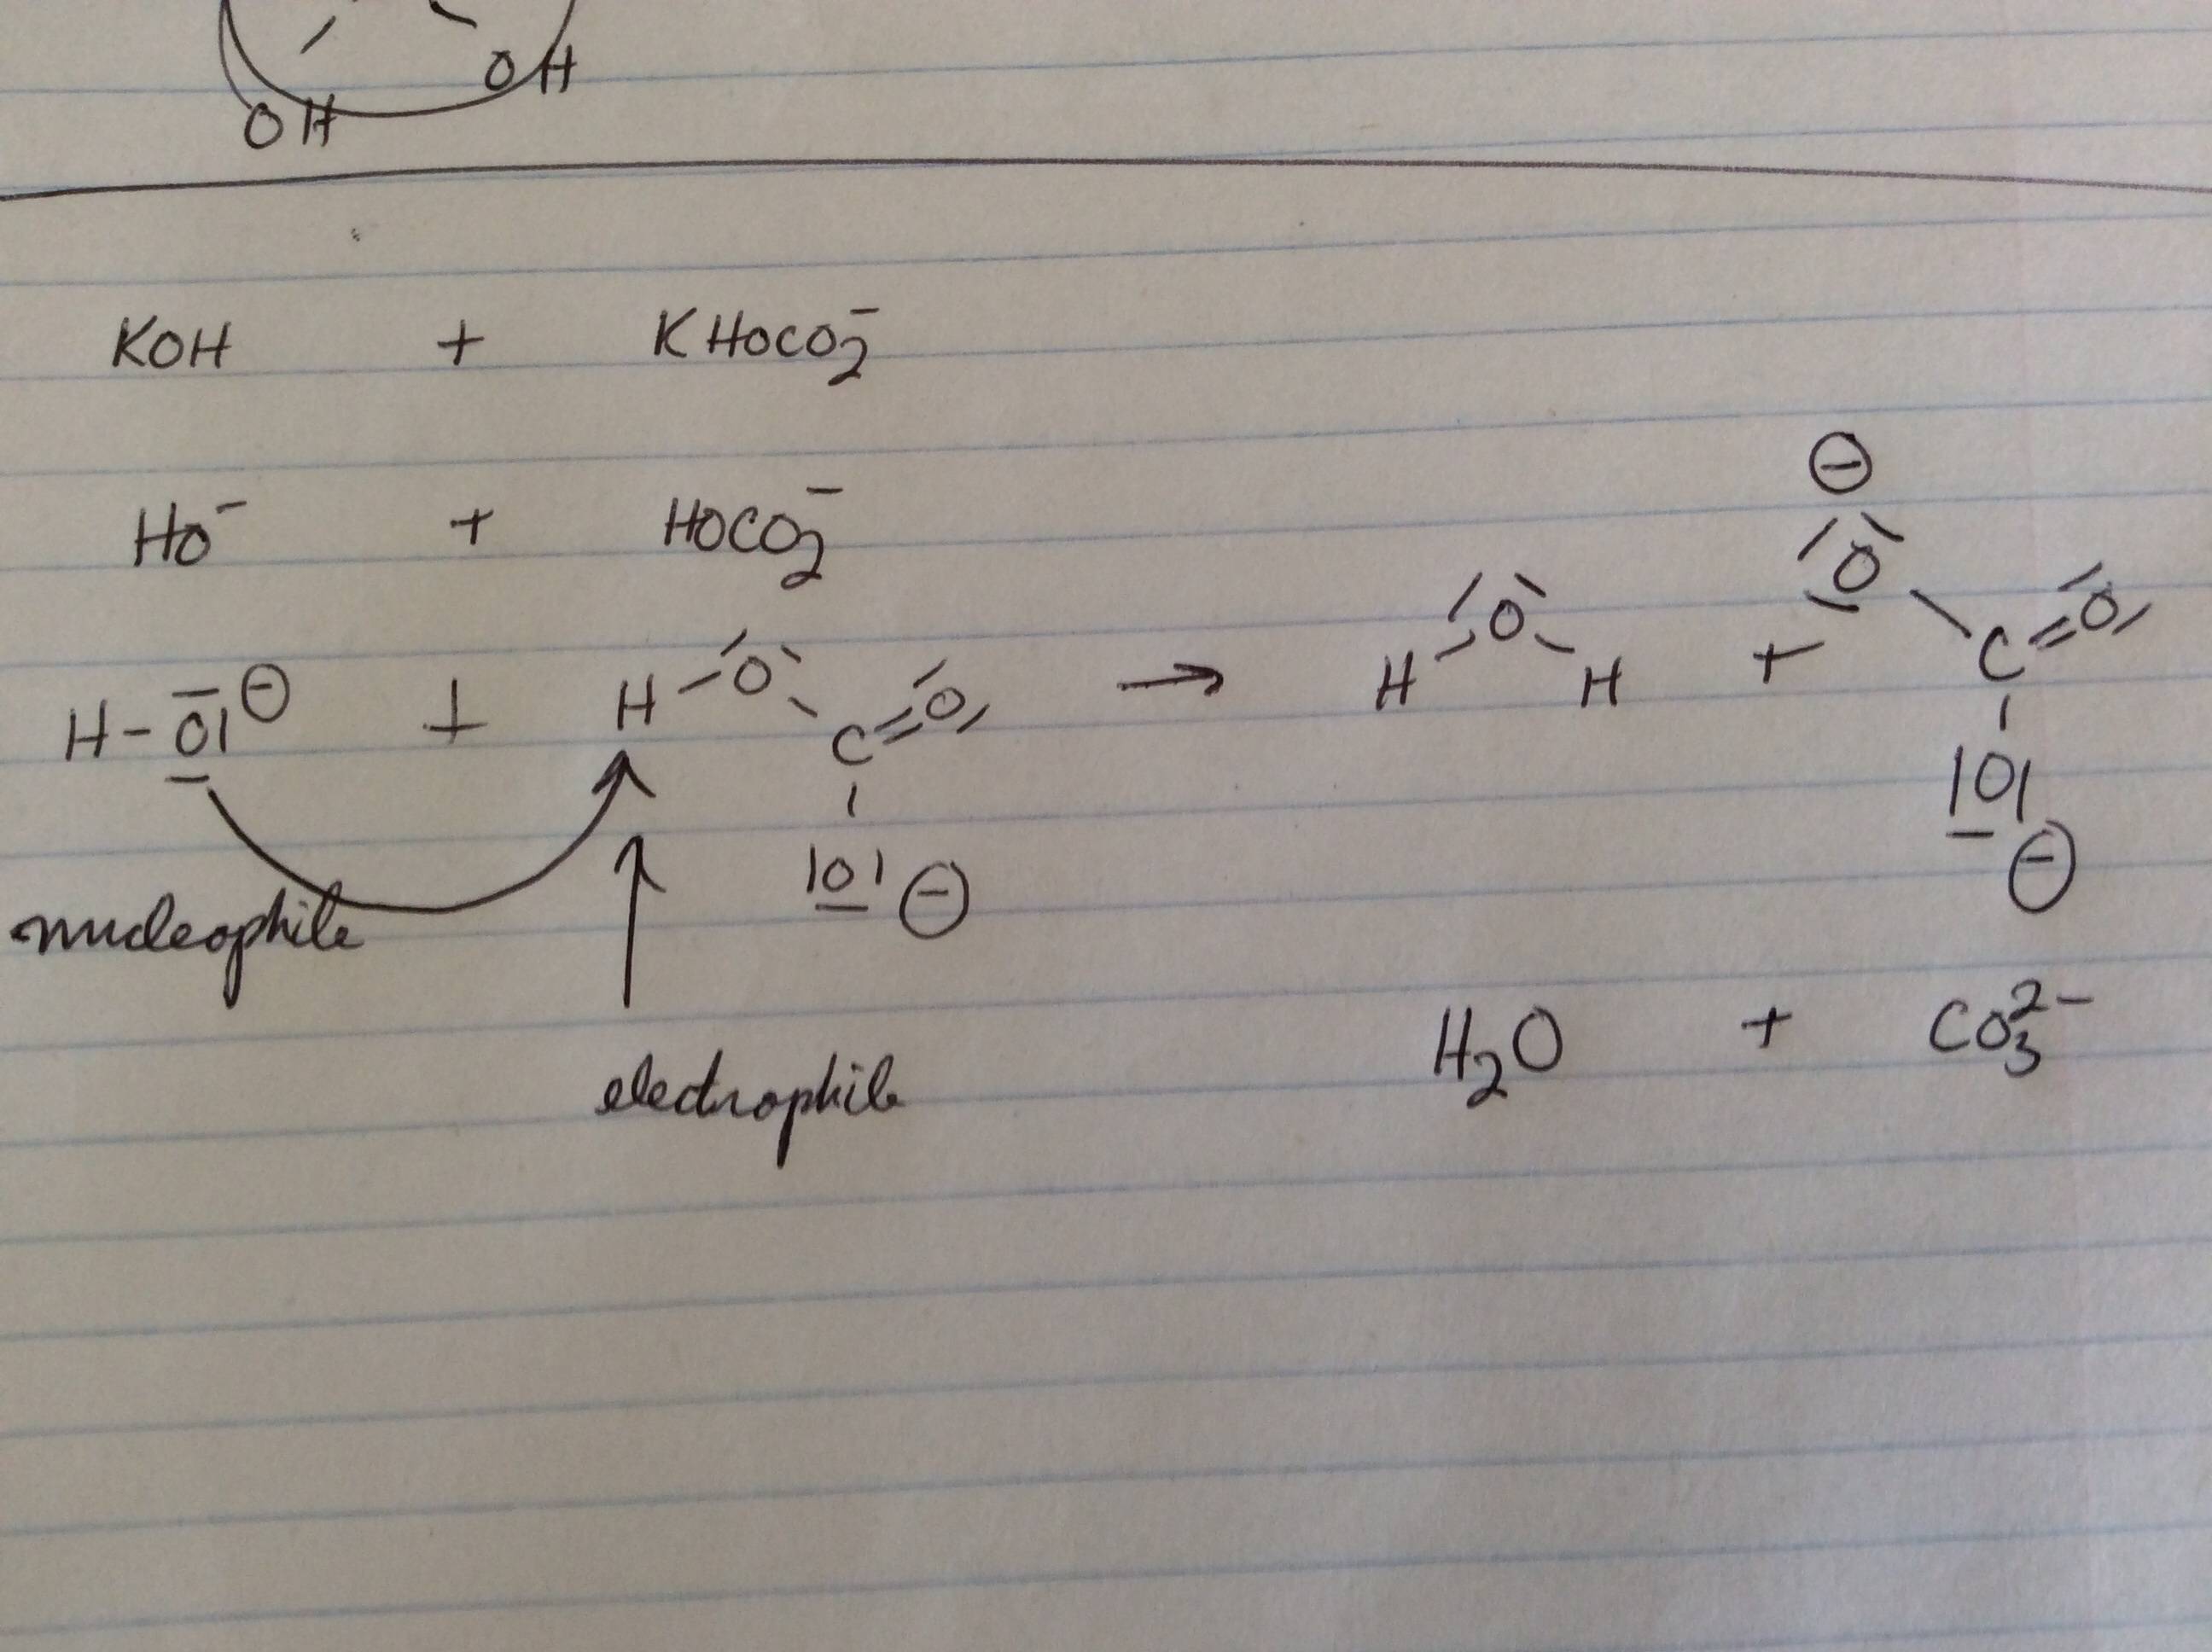 OH
OH
KOH + KHOCO₂⁻
HO⁻ + HOCO₂⁻
⊖
H-O⊖ + H-O-C=O → H-O-H + O-C=O
O⊖ O⊖
nucleophile
electrophile
H₂O + CO₃²⁻